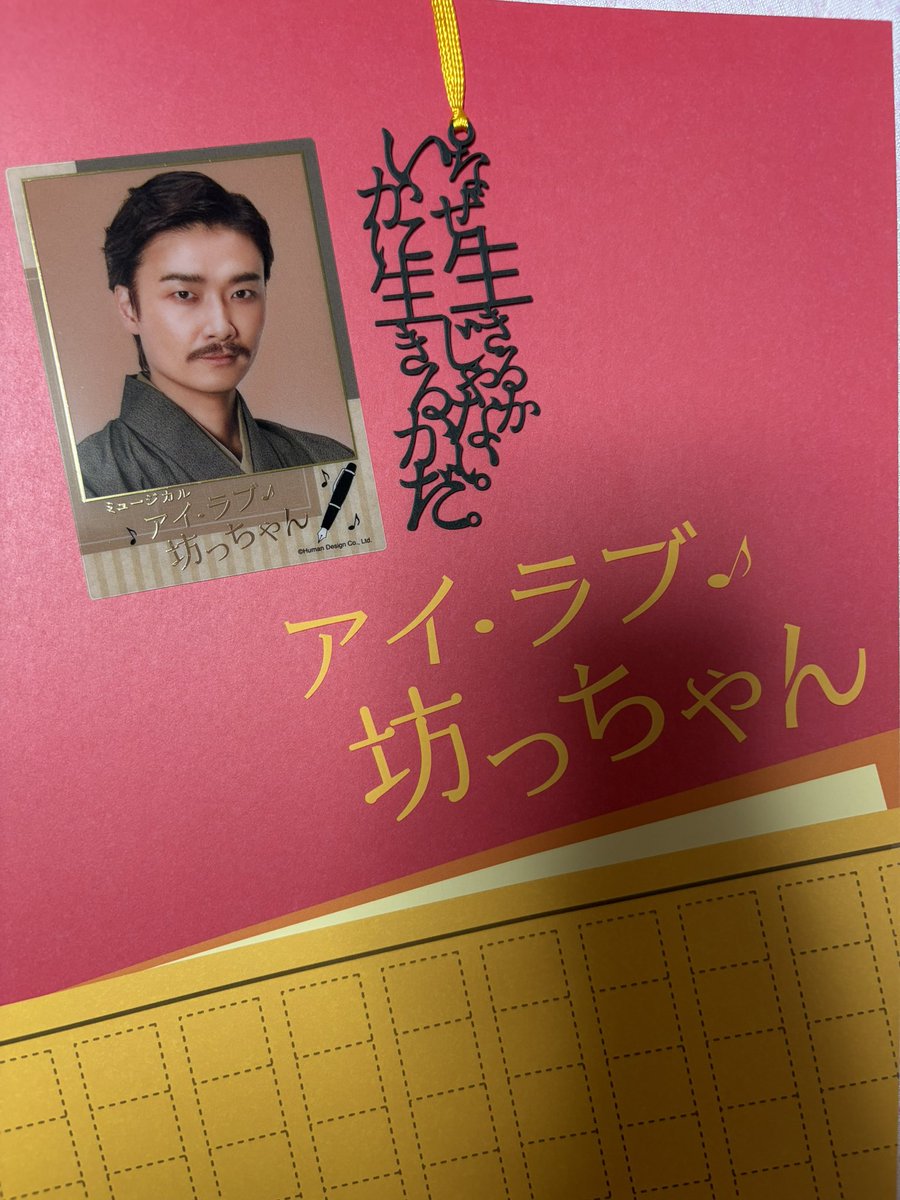 ミュージカル
アイ・ラブ♪
坊っちゃん
©Human Design Co., Ltd.
なぜ生きるか
じゃない。
いかに生きるかだ。
アイ・ラブ♪
坊っちゃん